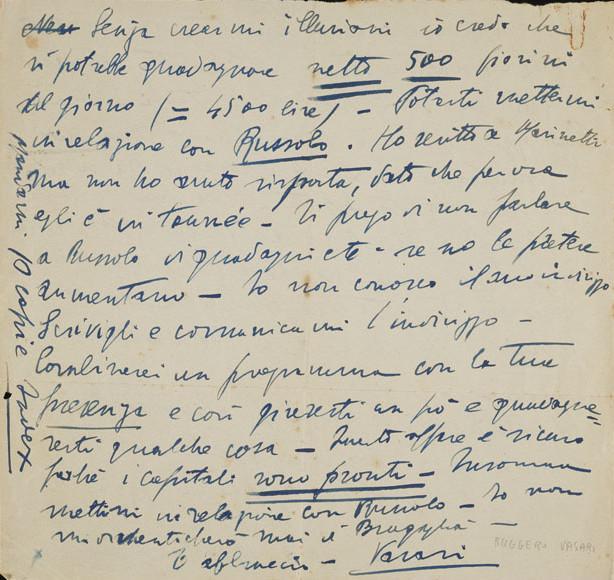 Senza crearmi illusioni io credo che
si potrebbe guadagnare netto 500 fiorini
al giorno (= 4500 lire) – Potresti mettermi
in relazione con Russolo. Ho scritto a Marinetti
ma non ho avuto risposta, dato che per ora
egli è in tournée – Ti prego di non parlare
a Russolo di guadagni etc – se no le pretese
aumentano – Io non conosco il suo indirizzo
Scrivigli e comunicami l'indirizzo –
Combinerei un programma con la tua
presenza e così gireresti un pò e guadagne=
resti qualche cosa – Questo affare è sicuro
perchè i capitali sono pronti – Insomma
mettimi in relazione con Russolo – Io non
mi dimenticherò mai di Bragaglia –
Ti abbraccio – Vasari
mandami 10 copie
RUGGERO VASARI